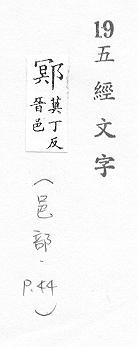 19 五經文字
鄍
莫丁反
晉邑
(邑部.P.44)